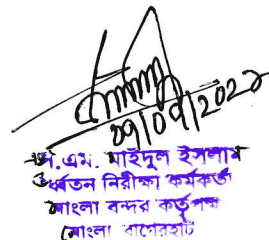 ০৭/০৭/২০২২
এ.এম. মাইদুল ইসলাম
ঊর্ধ্বতন নিরীক্ষা কর্মকর্তা
মোংলা বন্দর কর্তৃপক্ষ
মোংলা বাগেরহাট